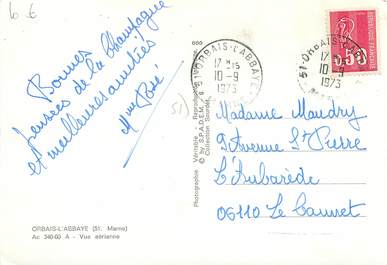 6 €
Bonnes
pensées de la Champagne
et meilleures amitiés
Mme Posé
51)
000
Photographie Véritable - Reproduction
© by S.P.A.D.E.M.
Collection
51 ORBAIS-L'ABBAYE
17 H 15
10-9
1973
51-ORBAIS-L'ABBAYE
17 H 15
10-9
1973
0,50
Madame Maudry
9 Avenue St Pierre
L'Aubarède
06110 Le Cannet
ORBAIS-L'ABBAYE (51. Marne)
Ac 340-60 A - Vue aérienne